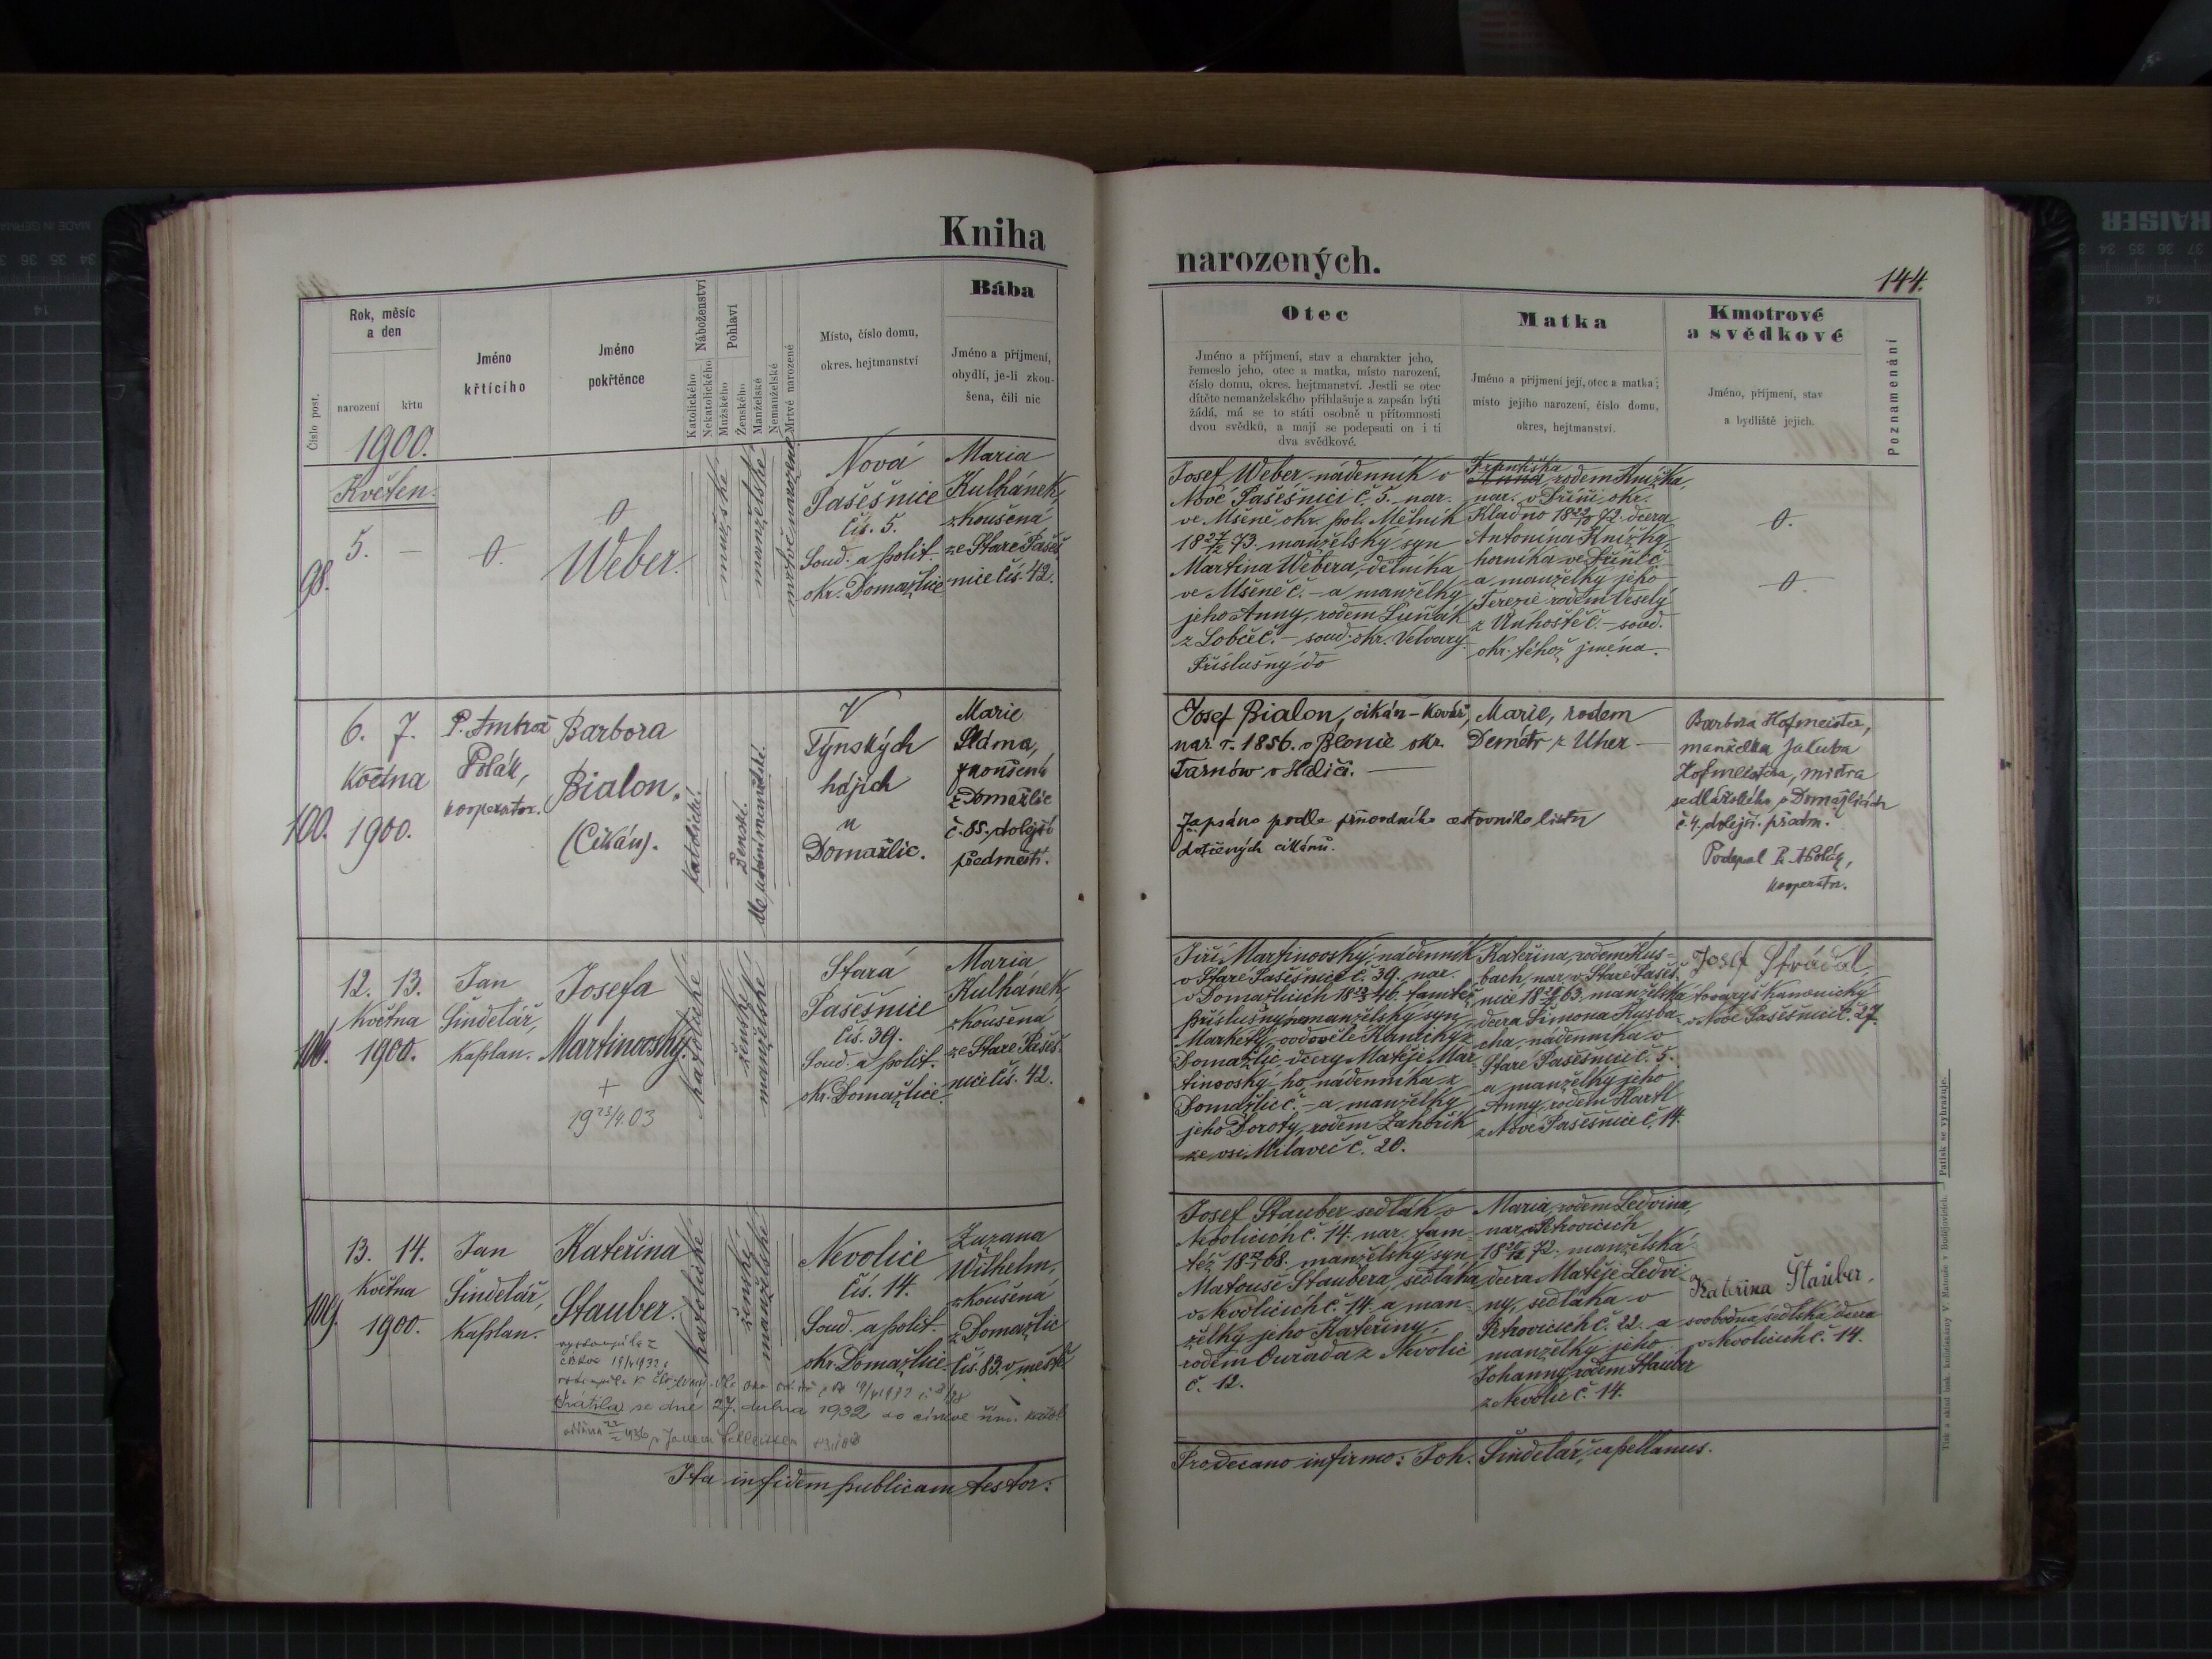 Kniha
narozených.
144.
Číslo post.
Rok, měsíc
a den
narození
křtu
Jméno
křtícího
Jméno
pokřtěnce
Náboženství
Katolického
Nekatolického
Pohlaví
Mužského
Ženského
Manželské
Nemanželské
Mrtvě narozené
Místo, číslo domu,
okres. hejtmanství
Bába
Jméno a příjmení,
obydlí, je-li zkou-
šena, čili nic
Otec
Jméno a příjmení, stav a charakter jeho,
řemeslo jeho, otec a matka, místo narození,
číslo domu, okres. hejtmanství. Jestli se otec
dítěte nemanželského přihlašuje a zapsán býti
žádá, má se to státi osobně u přítomnosti
dvou svědků, a mají se podepsati on i ti
dva svědkové.
Matka
Jméno a příjmení její, otec a matka;
místo jejího narození, číslo domu,
okres, hejtmanství.
Kmotrové
a svědkové
Jméno, příjmení, stav
a bydliště jejich.
Poznamenání
1900.
Květen.
98.
5. —
0.
0
Weber.
mužské
manželské
mrtvě narozené
Nová
Pašešnice
čís. 5.
Soud. a polit.
okr. Domažlice
Maria
Kulhánek,
zkoušená
ze Staré Pašeš
nice čís. 42.
Josef Weber, nádenník v
Nové Pašešnici č. 5. nar.
ve Mšeně okr. pol. Mělník
18 27/12 73. manželský syn
Martina Webera, dělníka
ve Mšeně č. – a manželky
jeho Anny, rodem Luňák
z Lobče č. – soud. okr. Velvary.
Příslušný do
Františka
Anna rodem Knížka,
nar. v Dříni okr.
Kladno 72. dcera
Antonína Knížky,
horníka ve Dříni č.
a manželky jeho
Terezie rodem Veselý
z Unhoště č. – soud.
okr. téhož jména.
0.
0.
100.
6. 7.
Května
1900.
P. Ambrož
Polák,
kooperator.
Barbora
Bialon.
(Cikán).
katolické.
ženské.
V
Týnských
hájích
u
Domažlic.
Marie
Sláma,
zkoušená
z Domažlic
č. 85. dolejší
předměstí.
Josef Bialon, cikán – kovář,
nar. r. 1856. v Blonie okr.
Tarnów v Haliči. —
Zapsáno podle průvodního cestovního listu
dotčených cikánů.
Marie, rodem
Demétr z Uher —
Barbora Hofmeister,
manželka Jakuba
Hofmeistra, mistra
sedlářského v Domažlicích
č. 4. dolejší. předm.
Podepsal P. A. Polák,
kooperator.
12. 13.
Května
1900.
Jan
Šindelář,
kaplan.
Josefa
Martinovský.
+
19 23/4. 03
katolické
ženské
manželské
Stará
Pašešnice
čís. 39.
Soud. a polit.
okr. Domažlice.
Maria
Kulhánek,
zkoušená
ze Staré Pašeš
nice čís. 42.
Jiří Martinovský, nádenník
v Staré Pašešnici č. 39. nar.
v Domažlicích 46. tamtéž
příslušný nemanželský syn
Markéty, ovdovělé Kanický z
Domažlic, dcery Matěje Mar
tinovský-ho, nádenníka z
Domažlic č. – a manželky
jeho Doroty, rodem Záhořík
ze vsi Milaveč č. 20.
Kateřina, rodem Kus-
bach, nar. v Staré Pašeš
nice 63. manželská
dcera Šimona Kusba-
cha, nádenníka v
Staré Pašešnici č. 5.
a manželky jeho
Anny, rodem Hartl
z Nové Pašešnice č. 14.
Josef Strádal,
tovaryš kamenický
v Nové Pašešnici č. 27.
109.
13. 14.
Května
1900.
Jan
Šindelář,
kaplan.
Kateřina
Stauber.
katolické
ženské
manželské
Nevolice
čís. 14.
Soud. a polit.
okr. Domažlice
Zuzana
Wilhelm,
zkoušená
z Domažlic
čís. 83. v městě
vystoupila z
se dne 27. dubna 1932 do církve řím. katol
Josef Stauber, sedlák v
Nevolicích č. 14. nar. tam-
též 68. manželský syn
Matouše Staubera, sedláka
v Nevolicích č. 14. a man-
želky jeho Kateřiny,
rodem Ouřada z Nevolic
č. 12.
Maria, rodem Ledvina,
nar. v Petrovicích
72. manželská
dcera Matěje Ledvi-
ny, sedláka v
Petrovicích č. 22. a
manželky jeho
Johanny, rodem Stauber
z Nevolic č. 14.
Kateřina Štauber,
svobodná sedlská dcera
v Nevolicích č. 14.
Ita in fidem publicam testor:
Pro decano infirmo: Joh. Šindelář, capellanus.
Tisk a sklad tisk. knihtiskárny V. Matouše v Budějovicích. Patisk se vyhražuje.